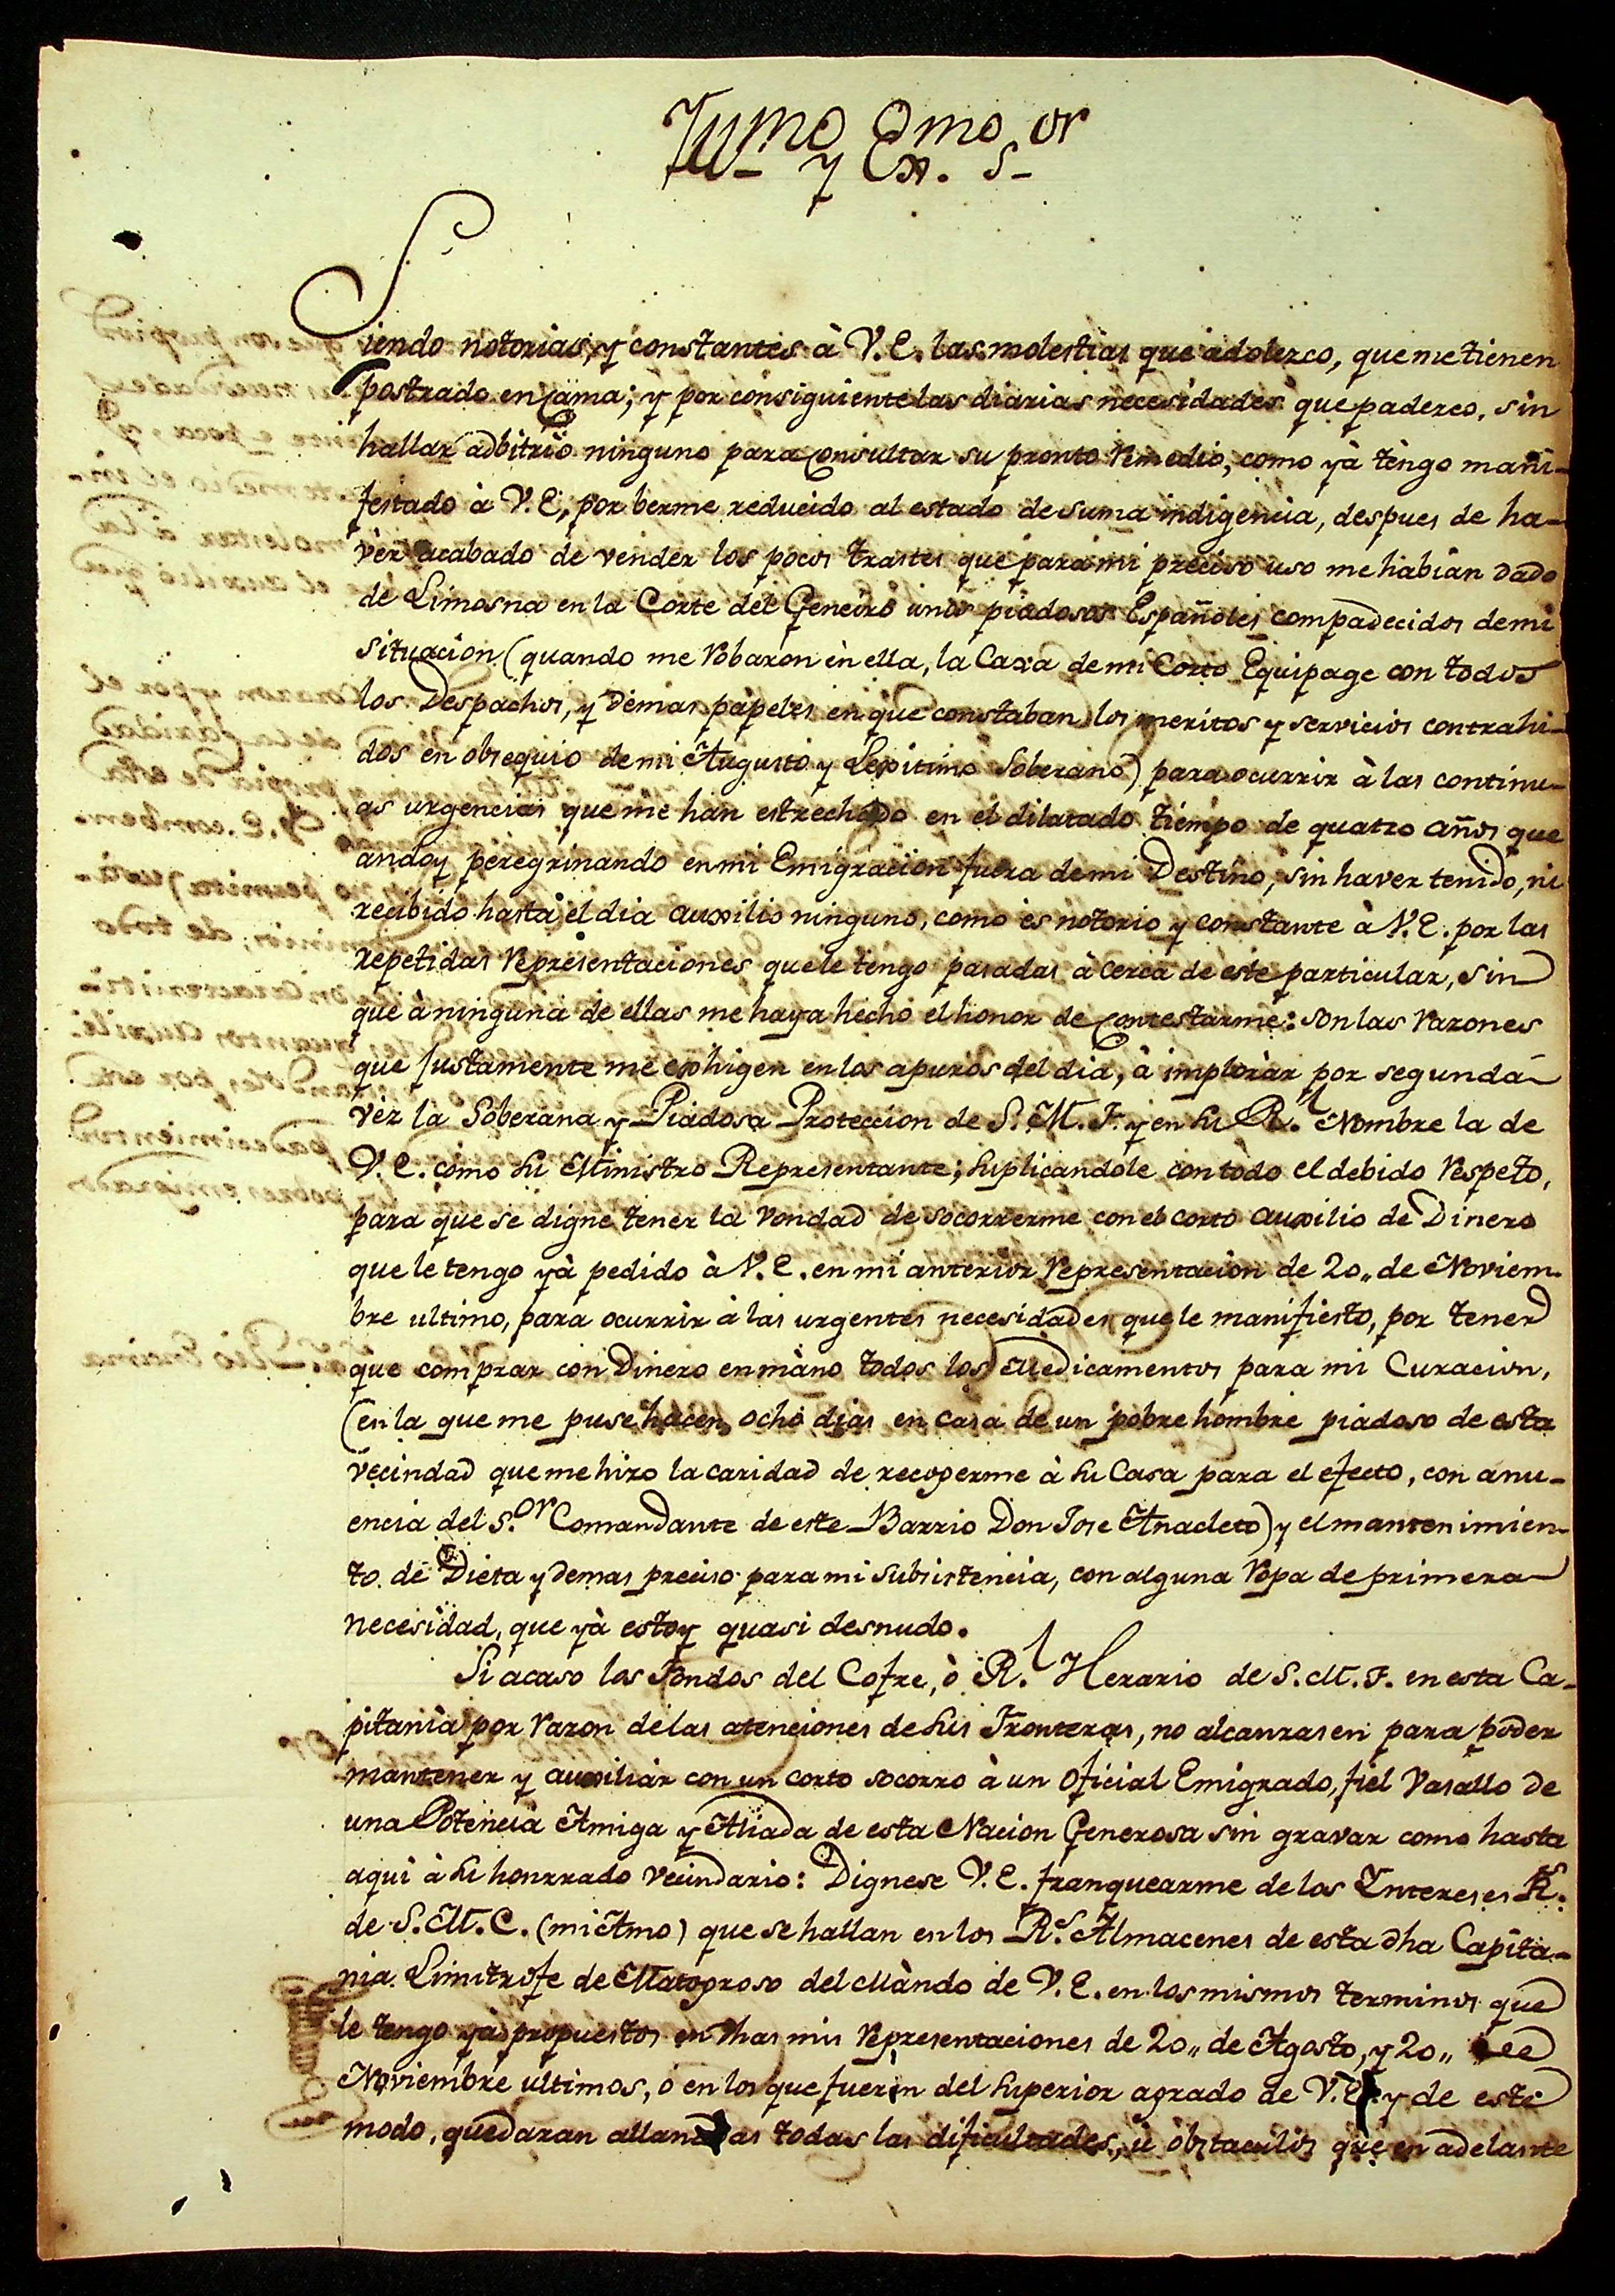 Illmo y Exmo Sor
Siendo notorias, y constantes à V.E. las molestias que adolezco, que me tienen
postrado en Cama; y por consiguiente las diarias necesidades que padezco, sin
hallar adbitrio ninguno para Consultar su pronto Remedio, como yà tèngo mani-
festado à V.E, por berme reducido al estado de suma indigencia, despues de ha-
vèr acabado de vender los pocos trastes que para mi preciso uso me habian dado
de Limosna en la Corte del Geneiro unos piadosos Españoles compadecidos de mi
situacion (quando me Robaron en ella, la Caxa de mi Corto Equipage con todos
los Despachos, y Demas papeles en que constaban los meritos y servicios contrahi-
dos en obsequio de mi Augusto y Lexitimo Soberano) para ocurrir à las continu-
as urgencias que me han estrechado en el dilatado tiempo de quatro años que
andoy peregrinando en mi Emigracion fuera de mi Destino, sin haver tenido, ni
recibido hasta el dia auxilio ninguno, como es notorio y constante à V.E. por las
repetidas Representaciones que le tengo pasadas à cerca de este particular, sin
que à ninguna de ellas me haya hecho el honor de Contestarme: son las Razones
que Justamente me exhigen en los apuros del dia, à implorar por segunda
vèz la Soberana y Piadosa Proteccion de S.M.F. y en su Rl. Nombre la de
V.E. como su Ministro Representante; suplicandole con todo el debido Respeto,
para que se digne tener la vondad de socorrerme con el corto auxilio de Dinero
que le tengo yà pedido à V.E. en mi anterior Representacion de 20,, de Noviem-
bre ultimo, para ocurrir à las urgentes necesidades que le manifiesto, por tener
que comprar con Dinero en màno todos los Medicamentos para mi Curacion,
(en la que me puse hacen ocho dias en casa de un pobre hombre piadoso de esta
vecindad que me hizo la caridad de recogerme à su Casa para el efecto, con anu-
encia del S.or Comandante de este Barrio Don Jose Anacleto) y el mantenimien-
to de Dieta y demas preciso para mi subsistencia, con alguna Ropa de primera
necesidad, que yà estoy quasi desnudo.
Si acaso los Fondos del Cofre, ò Rl. Herario de S.M.F. en esta Ca-
pitania por Razon de las atenciones de sus Fronteras, no alcanzasen para poder
mantener y auxiliar con un corto socorro à un Oficial Emigrado, fiel Vasallo de
una Potencia Amiga y Aliada de esta Nacion Generosa sin gravar como hasta
aqui à su honrrado vecindario: Dignese V.E. franquearme de los Intereses Rs.
de S.M.C. (mi Amo) que se hallan en los Rs. Almacenes de esta dha Capita-
nia Limitrofe de Matogroso del Màndo de V.E. en los mismos terminos que
le tengo yà propuestos en dhas mis Representaciones de 20,, de Agosto, y 20,, de
Noviembre ultimos, ò en los que fueren del superior agrado de V.E. y de este
modo, quedaran allanadas todas las dificultades, ù obstaculos que en adelante